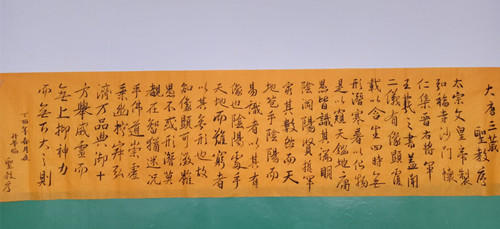 大唐三藏
聖教序
太宗文皇帝製
弘福寺沙門懷
仁集晉右將軍
王羲之書蓋聞
二儀有像顯覆
載以含生四時無
形潛寒暑以化物
是以窺天鑑地庸
愚皆識其端明
陰洞陽賢哲罕
窮其數然而天
地苞乎陰陽而
易識者以其有
像也陰陽處乎
天地而難窮者
以其無形也故
知像顯可徵雖
愚不惑形潛莫
覩在智猶迷況
乎佛道崇虛
乘幽控寂弘
濟万品典御十
方舉威靈而
無上抑神力
而無下大之則
年春月
聖教序